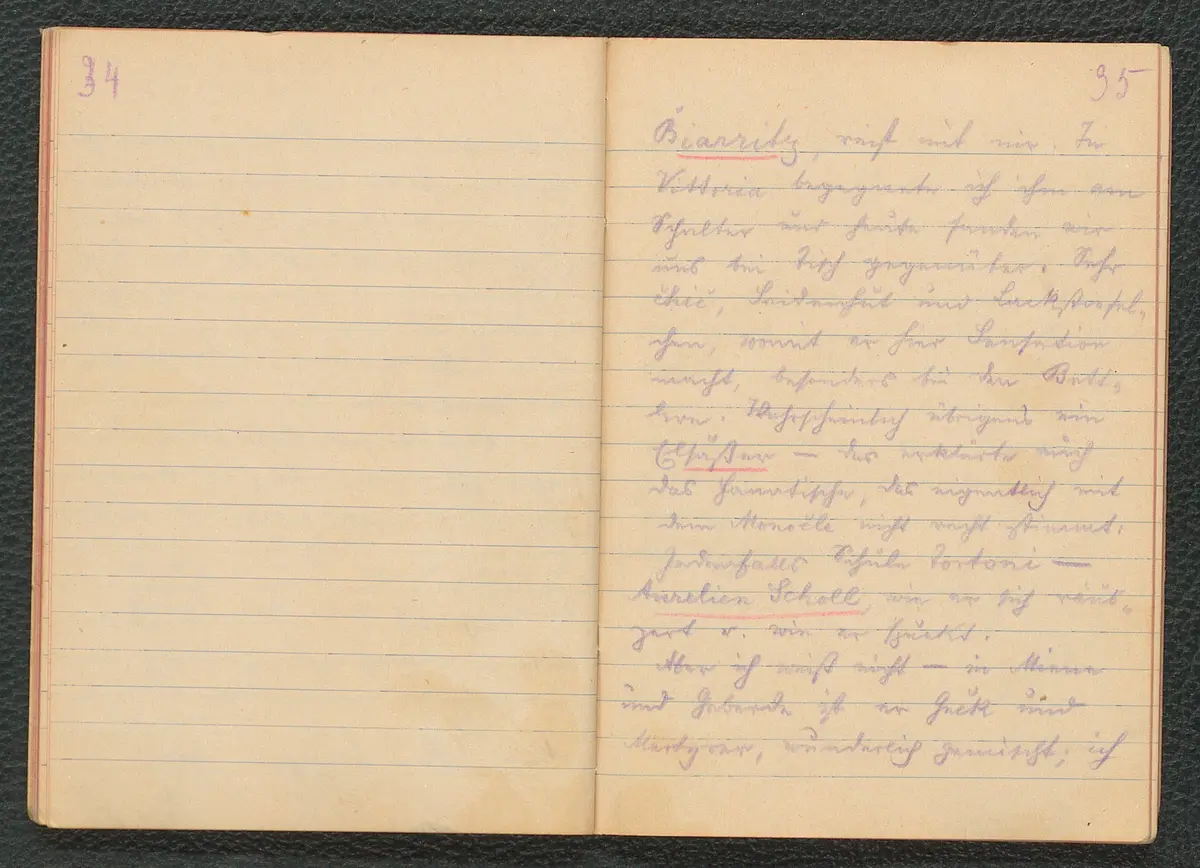 34
95
Biarritz, reist mit mir. In
Vittoria begegnete ich ihm am
Schalter und heute fanden wir
uns bei Tisch gegenüber. Sehr
chic, Seidenhut und Lackstiefel-
chen, womit er hier Sensation
macht, besonders bei den Bett-
lern. Wahrscheinlich übrigens ein
Elsäßer — das erklärte auch
das Fanatische, das eigentlich mit
dem Monocle nicht recht stimmt.
Jedenfalls Schule Tortoni —
Aurelien Scholl, wie er sich räus-
pert u. wie er spuckt.
Aber ich weiß nicht — in Miene
und Geberde ist er Geck und
Martyrer, wunderlich gemischt; ich